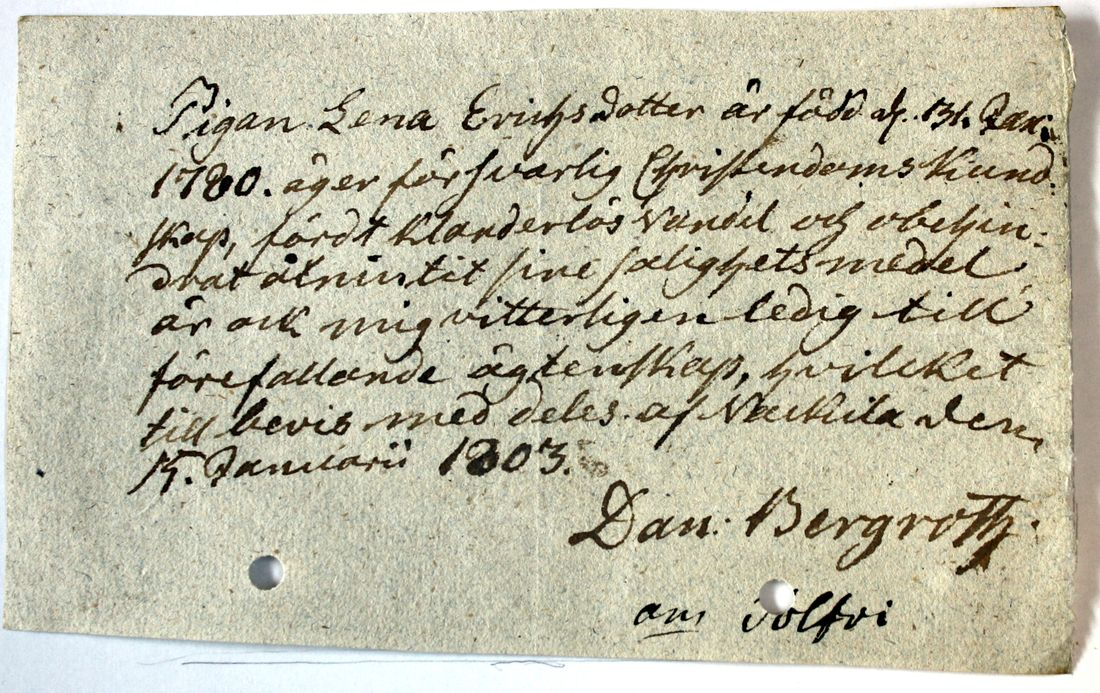 Pigan Lena Erichsdotter är född d. 31. Jan:
1780. äger försvarlig Christendoms Kund-
skap, fördt Klanderlös Vandel och obehin-
drat åtniutit sine salighetsmedel,
är ock mig vitterligen ledig till
förefallande ägtenskap, hvilcket
till bevis meddeles. af Nackila den
15. Januarii 1803.
Dan: Bergroth.